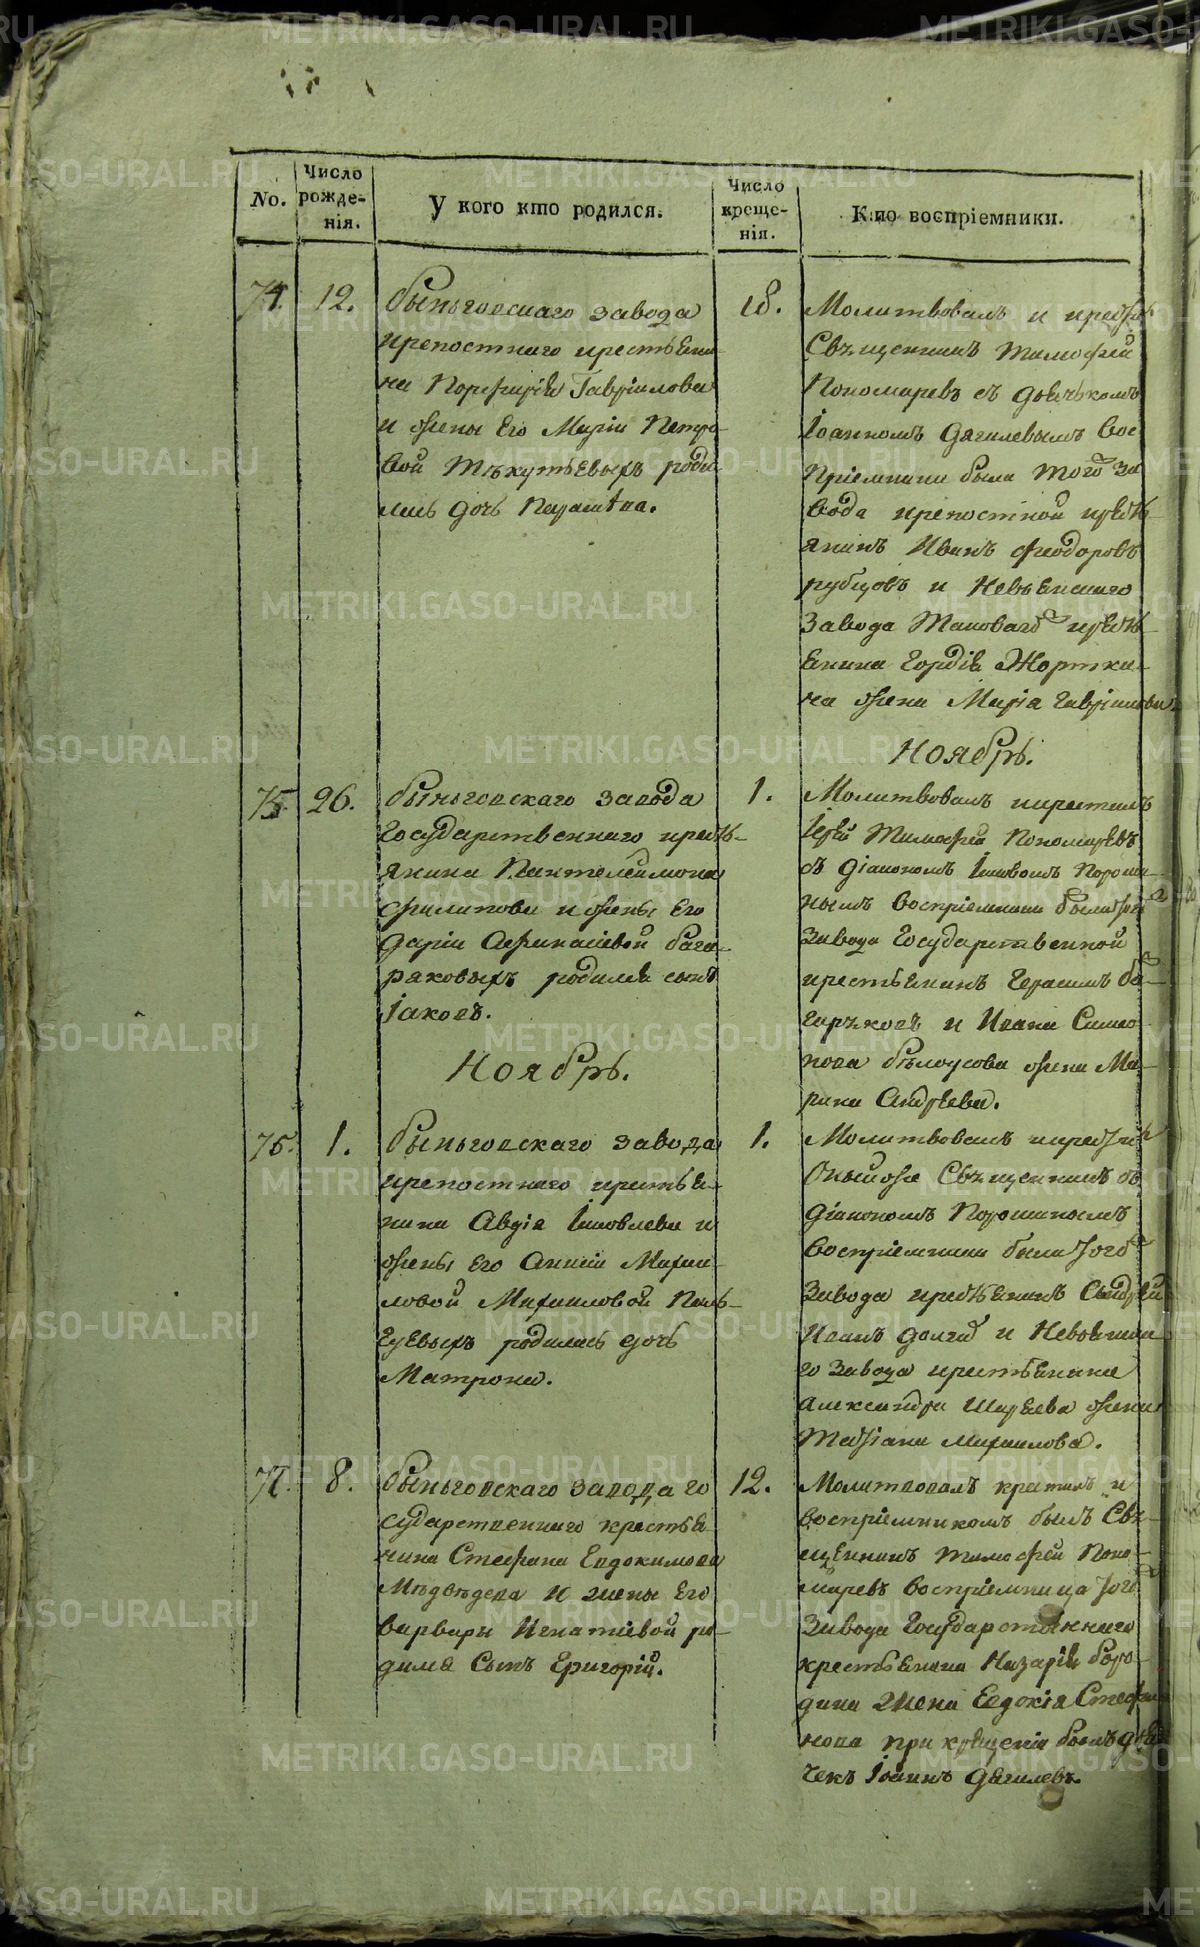 No.
Число рожде-нія.
У кого кто родился.
Число креще-нія.
Кто воспріемники.
74.
12.
Быньговскаго завода
крепостнаго крестьяни-
на Порфирія Гавриилова
и жены Его Маріи Петро-
вой Тѣкутьевыхъ роди
лась дочь
18.
Молитвовалъ и
Свѣщенникъ Тимофей
Пономаревъ съ дьячькомъ
Іоанномъ Дягилевымъ Вос
пріемники были того за
вода крепостной крѣсть-
янинъ Иванъ Феодоровъ
рубцовъ и Невьянскаго
завода Таковагоже крѣсть-
янина Гордія Жортки-
на жена Марія Гавриилова.
Ноябрь.
75.
26.
Быньговскаго завода
Государственнаго кресть-
янина Пантелеимона
Филипова и жены Его
Даріи Афанасіевой бага-
ряковыхъ родился сынъ
Іаковъ.
1.
Молитвовалъ и крестилъ
Іерей Тимофей Пономаревъ
съ Діакономъ Іаковомъ Пороши-
нымъ Воспріемники были того
Завода Государственной
крестьянинъ Герасимъ ба-
гаряковъ и Ивана Симо-
нова бѣлоусова жена Ма-
рина Андреева.
Ноябрь.
76.
1.
Быньговскаго завода
крепостнаго крестья-
нина Авдія Іаковлева и
жены Его Анисіи Михаи-
ловой Михаиловой
родилась дочь
Матрона.
1.
Молитвовалъ
Оныйже Свѣщенникъ съ
Діакономъ Порошинымъ
воспріемники были того
Завода крестьянинъ
Иванъ и Невьянска-
го Завода крестьянина
Александра Ширяева жена
Татіана Михаилова.
77.
8.
Быньговскаго завода го
сударственнаго крестья-
нина Стефана Евдокимова
Мѣдвѣдева и жены Его
Варвары Игнатіевой ро-
дился Сынъ Григорій.
12.
Молитвовалъ крѣстилъ и
воспріемникомъ былъ Свѣ-
щенникъ Тимофей Поно-
маревъ воспріемница того
Завода Государственнаго
крестьянина Назарія боро-
дина жена Евдокія Стефа
нова при крѣщеніи былъ дья
чекъ Іоаннъ Дягилевъ.
METRIKI.GASO-URAL.RU